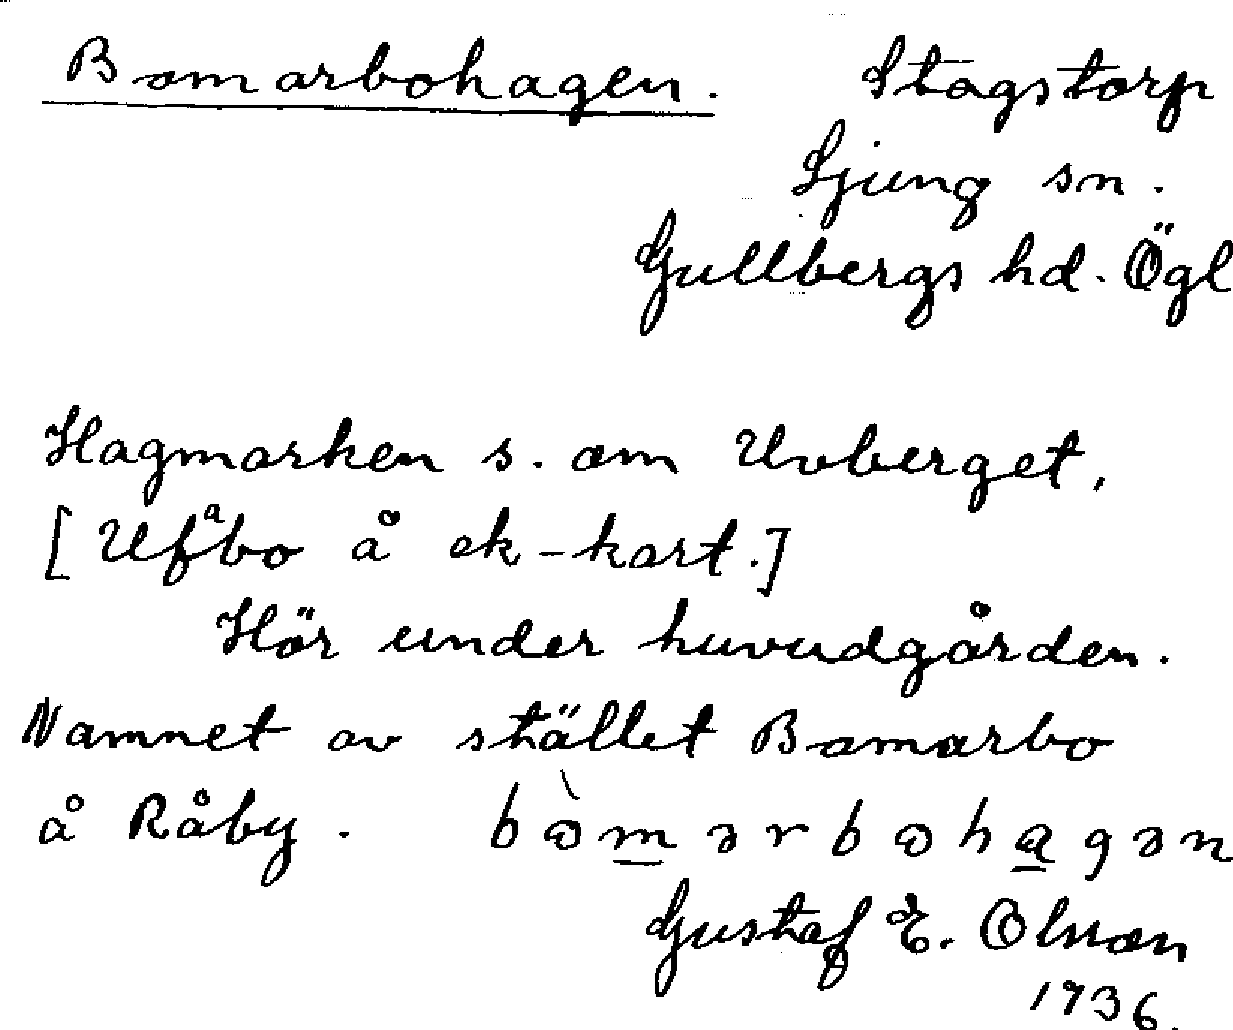 Bomarbohagen. Stogstorp
Ljung sn.
Gullbergs hd. Ögl
Hagmarken s. om Uvberget,
[Ufᵃbo å ek-kart.]
Hör under huvudgården.
Namnet av stället Bomarbo
å Råby. bò̀m̲ərbωha̲gən
Gustaf E. Olsson
1936.